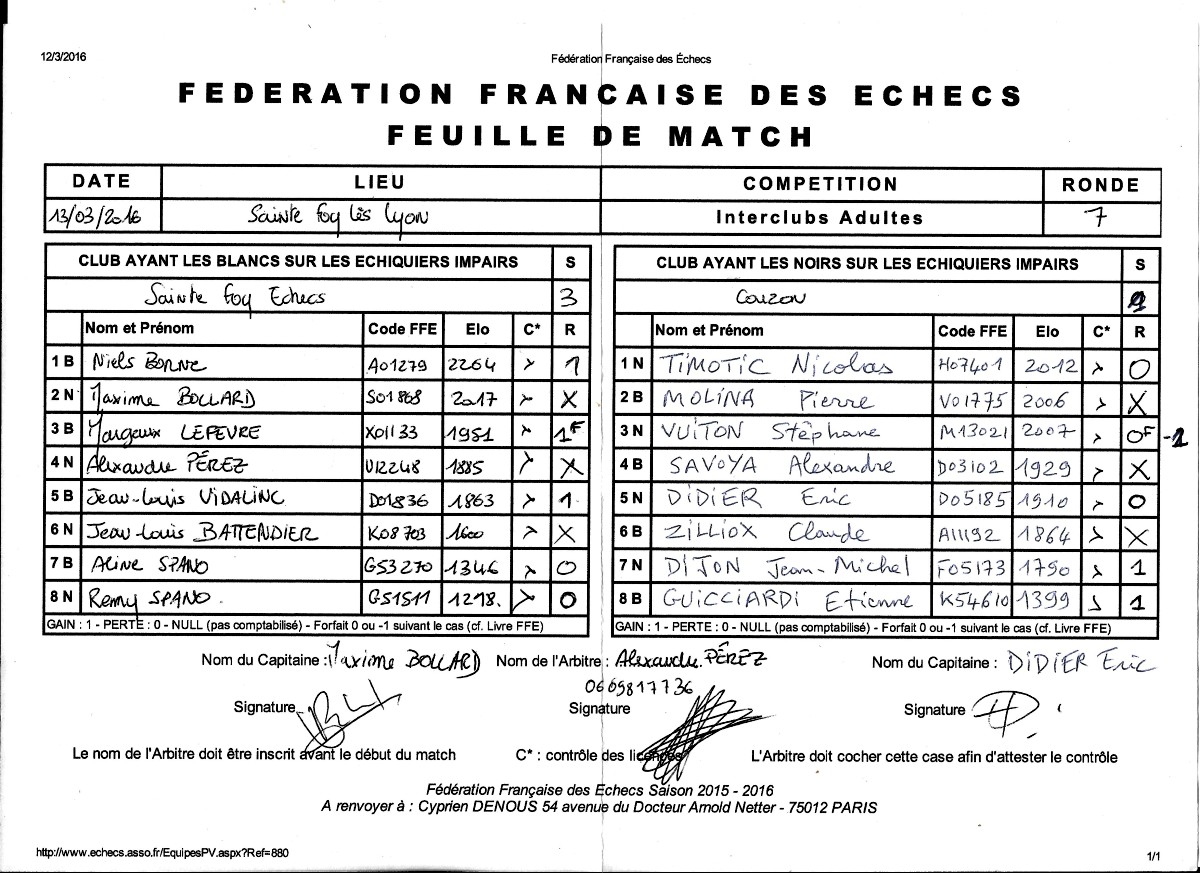 12/3/2016 Fédération Française des Échecs
FEDERATION FRANCAISE DES ECHECS
FEUILLE DE MATCH
DATE LIEU COMPETITION RONDE
13/03/2016 Sainte Foy lès Lyon Interclubs Adultes 7
CLUB AYANT LES BLANCS SUR LES ECHIQUIERS IMPAIRS S CLUB AYANT LES NOIRS SUR LES ECHIQUIERS IMPAIRS S
Sainte Foy Echecs 3 Couzon
Nom et Prénom Code FFE Elo C* R Nom et Prénom Code FFE Elo C* R
1 B Niels BORNE A01279 2264 1 1 N TIMOTIC Nicolas H07401 2012 0
2 N Maxime BOLLARD S01868 2017 X 2 B MOLINA Pierre V01775 2006 X
3 B Margaux LEFEVRE X01133 1951 1F 3 N VUITON Stéphane M13021 2007 0F -1
4 N Alexandre PÉREZ U12248 1885 X 4 B SAVOYA Alexandre D03102 1929 X
5 B Jean-Louis VIDALINC D01836 1863 1 5 N DIDIER Eric D05185 1910 0
6 N Jean-Louis BATTENDIER K08703 1600 X 6 B ZILLIOX Claude A11192 1864 X
7 B Aline SPANO G53270 1346 0 7 N DIJON Jean-Michel F05173 1790 1
8 N Remy SPANO. G51511 1298. 0 8 B GUICCIARDI Etienne K54610 1399 1
GAIN : 1 - PERTE : 0 - NULL (pas comptabilisé) - Forfait 0 ou -1 suivant le cas (cf. Livre FFE) GAIN : 1 - PERTE : 0 - NULL (pas comptabilisé) - Forfait 0 ou -1 suivant le cas (cf. Livre FFE)
Nom du Capitaine : Maxime BOLLARD Nom de l'Arbitre : Alexandre PÉREZ Nom du Capitaine : DIDIER Eric
0669817736
Signature Signature Signature
Le nom de l'Arbitre doit être inscrit avant le début du match C* : contrôle des licences L'Arbitre doit cocher cette case afin d'attester le contrôle
Fédération Française des Echecs Saison 2015 - 2016
A renvoyer à : Cyprien DENOUS 54 avenue du Docteur Arnold Netter - 75012 PARIS
http://www.echecs.asso.fr/EquipesPV.aspx?Ref=880 1/1